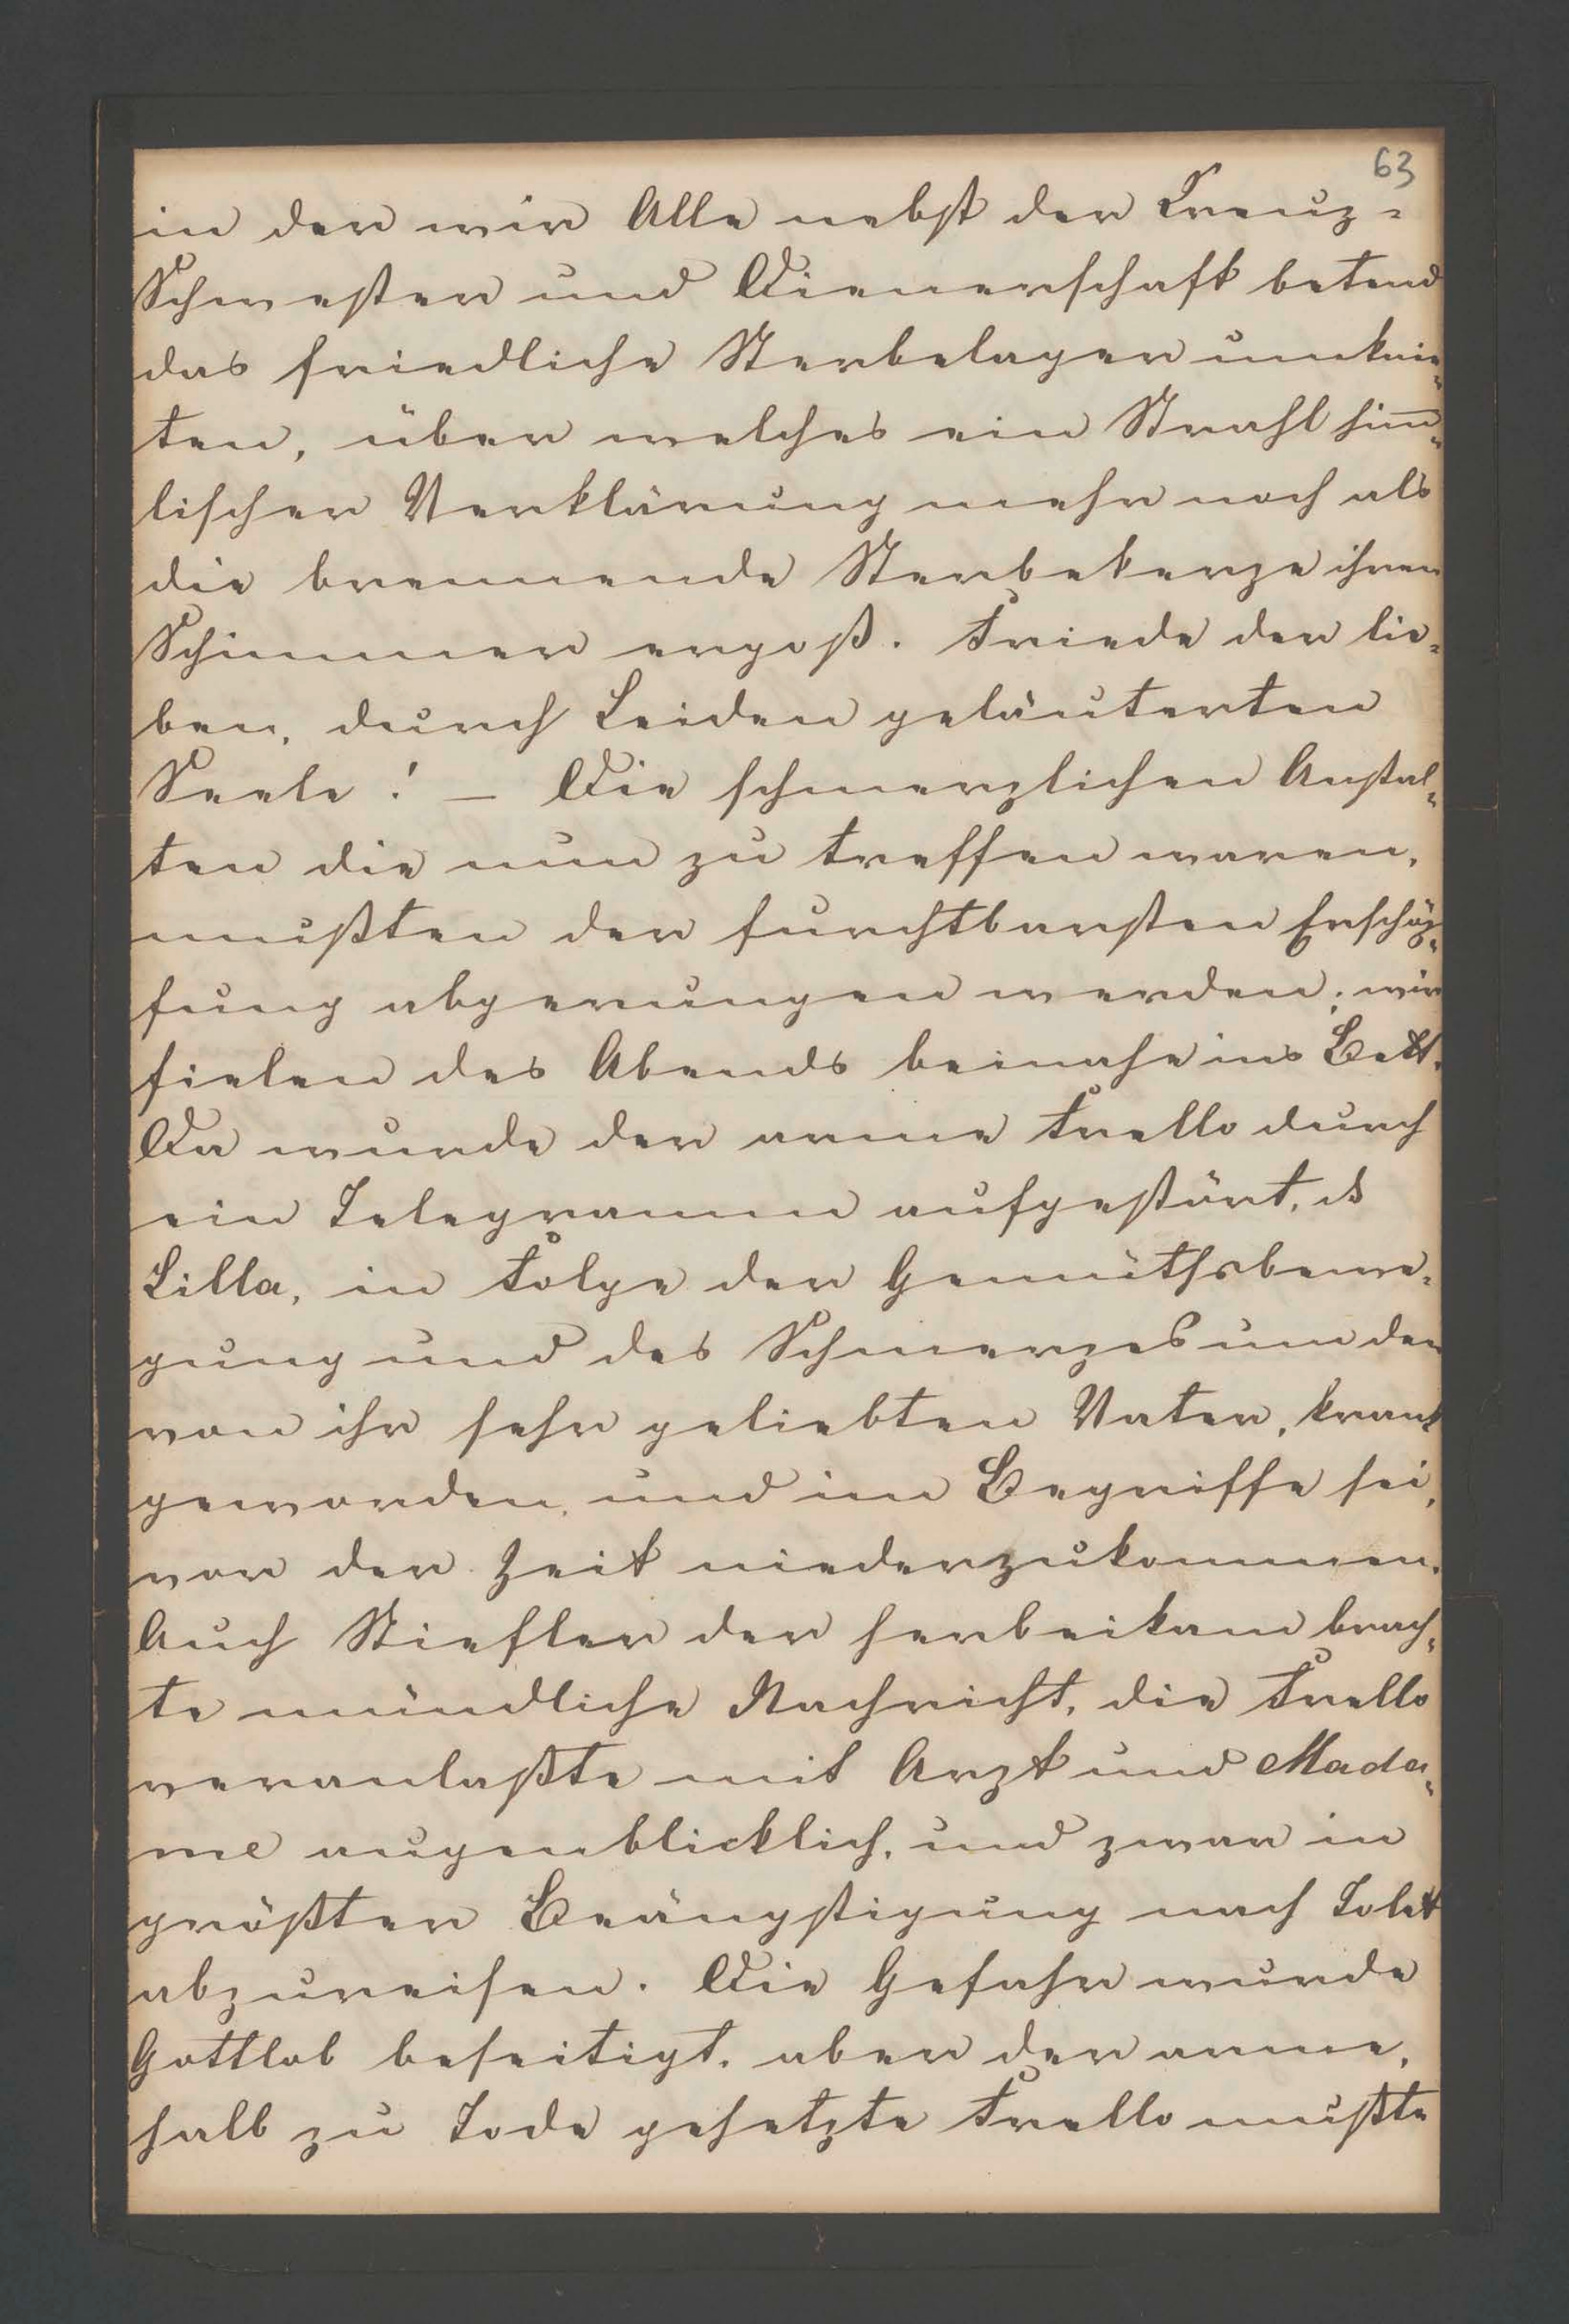 63
in der wir Alle nebst der Kreuz-
Schwester und Dienerschaft betend
das friedliche Sterbelager umknie-
ten, über welches ein Strahl him̅-
lischer Verklärung mehr noch als
die brennende Sterbekerze ihren
Schimmer ergoß. Friede der lie-
ben, durch Leiden geläuterten
Seele! – Die schmerzlichen Anstal-
ten die nun zu treffen waren,
mußten der furchtbarsten Erschöp-
fung abgerungen werden; wir
fielen des Abends beinahe ins Bett.
Da wurde der arme Frello durch
ein Telegramm aufgestört, dß
Lilla, in Folge der Gemüthsbewe-
gung und des Schmerzes um den
von ihr sehr geliebten Vater, krank
geworden, und im Begriffe sei,
vor der Zeit niederzukommen.
Auch Stiefler der herbeikam brach-
te mündliche Nachricht, die Frello
veranlaßte mit Arzt und Mada-
me augenblicklich, und zwar in
größter Beängstigung nach Tolet
abzureisen. Die Gefahr wurde
Gottlob beseitigt, aber der arme,
halb zu Tode gehetzte Frello mußte